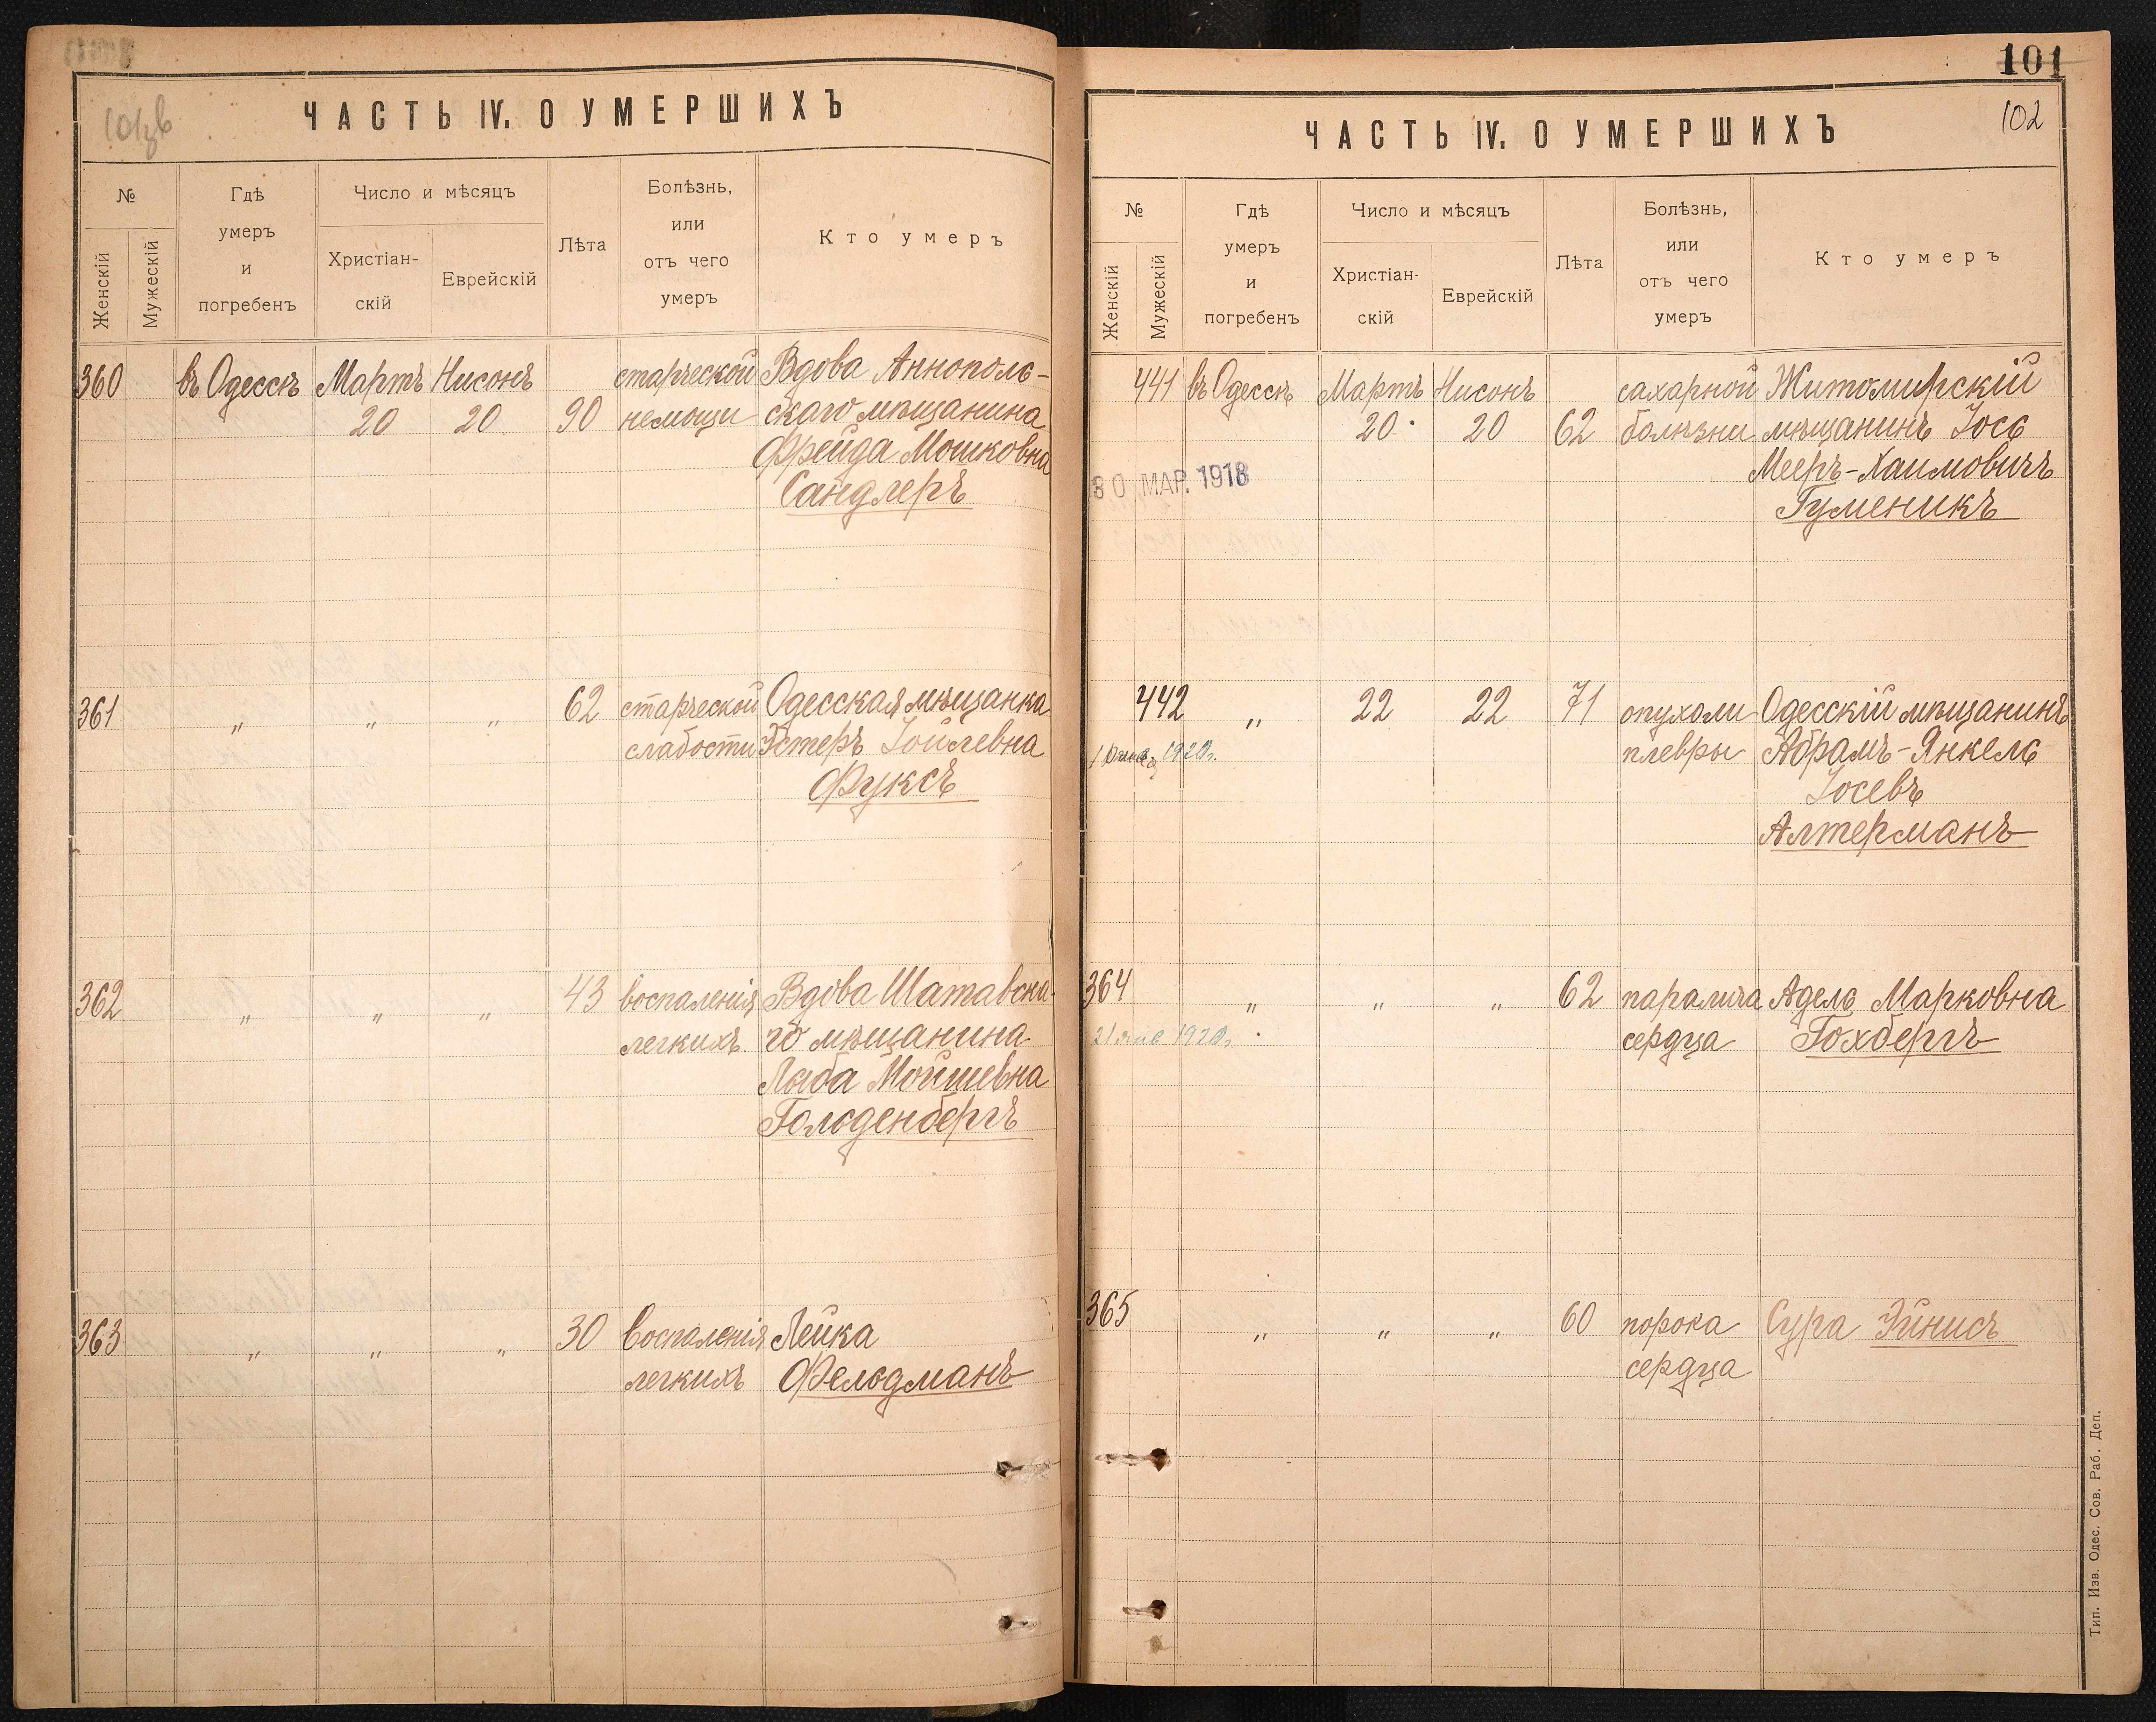 101зв
ЧАСТЬ IV. О УМЕРШИХЪ
№
Женскій
Мужескій
Гдѣ
умеръ
и
погребенъ
Число и мѣсяцъ
Христіан-
скій
Еврейскій
Лѣта
Болѣзнь,
или
отъ чего
умеръ
Кто умеръ
360 въ Одессѣ Мартъ Нисонъ старческой Вдова Аннополь-
20 20 90 немощи скаго мѣщанина
Фрейда Мошковна
Сандлеръ
361 " " " 62 старческой Одесская мѣщанка
слабости Эстеръ Іойлевна
Фуксъ
362 " " " 43 воспаленія Вдова Шатавска-
легкихъ го мѣщанина
Лыба Мойшевна
Гольденбергъ
363 " " " 30 воспаленія Лейка
легкихъ Фельдманъ
101
102
ЧАСТЬ IV. О УМЕРШИХЪ
№
Женскій
Мужескій
Гдѣ
умеръ
и
погребенъ
Число и мѣсяцъ
Христіан-
скій
Еврейскій
Лѣта
Болѣзнь,
или
отъ чего
умеръ
Кто умеръ
441 въ Одессѣ Мартъ Нисонъ сахарной Житомирскій
20 20 62 болѣзни мѣщанинъ Іось
Мееръ-Хаимовичъ
30 МАР. 1918
Гуменикъ
442 " 22 22 71 опухоли Одесскій мѣщанинъ
1920г. плевры Абрамъ-Янкель
Іосевъ
Алтерманъ
364 " " " 62 паралича Адель Марковна
21 янв 1920г. сердца Гохбергъ
365 " " " 60 порока Сура Эйнисъ
сердца
Тип. Изв. Одес. Сов. Раб. Деп.